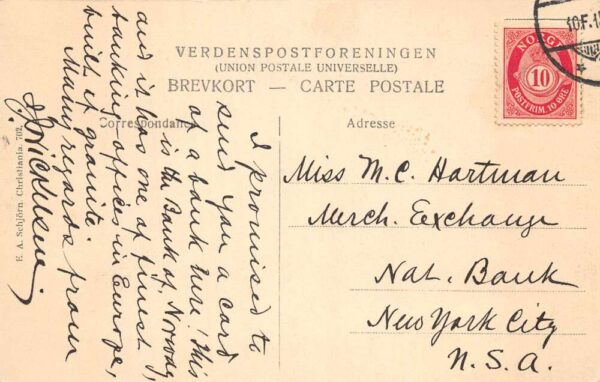 VERDENSPOSTFORENINGEN
(UNION POSTALE UNIVERSELLE)
BREVKORT — CARTE POSTALE
NORGE
10
POSTFRIM. 10 ØRE
10.F.1
Correspondance
Adresse
I promised to
send you a card
of a bank here! This
is the Bank of Norway,
and it was one of finest
banking offices in Europe,
built of granite.
Many regards from
Miss M.C. Hartman
Merch. Exchange
Nat. Bank
New York City
N.S.A.
E. A. Schjörn. Christiania. 702.